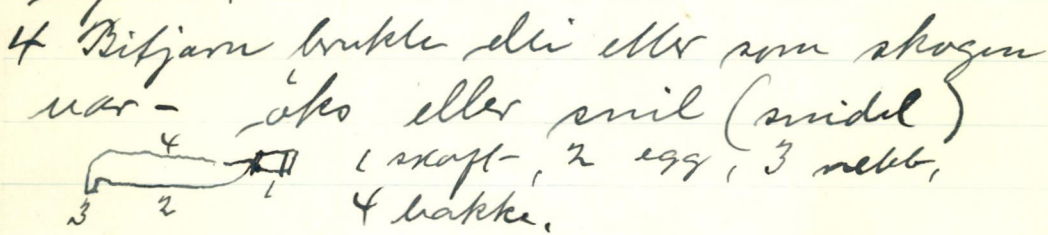 4 Bitjarn brukte dei etter som skogen
var - öks eller snil (snidel)
4 1 skaft, 2 egg, 3 nebb,
3 2 1 4 bakke.